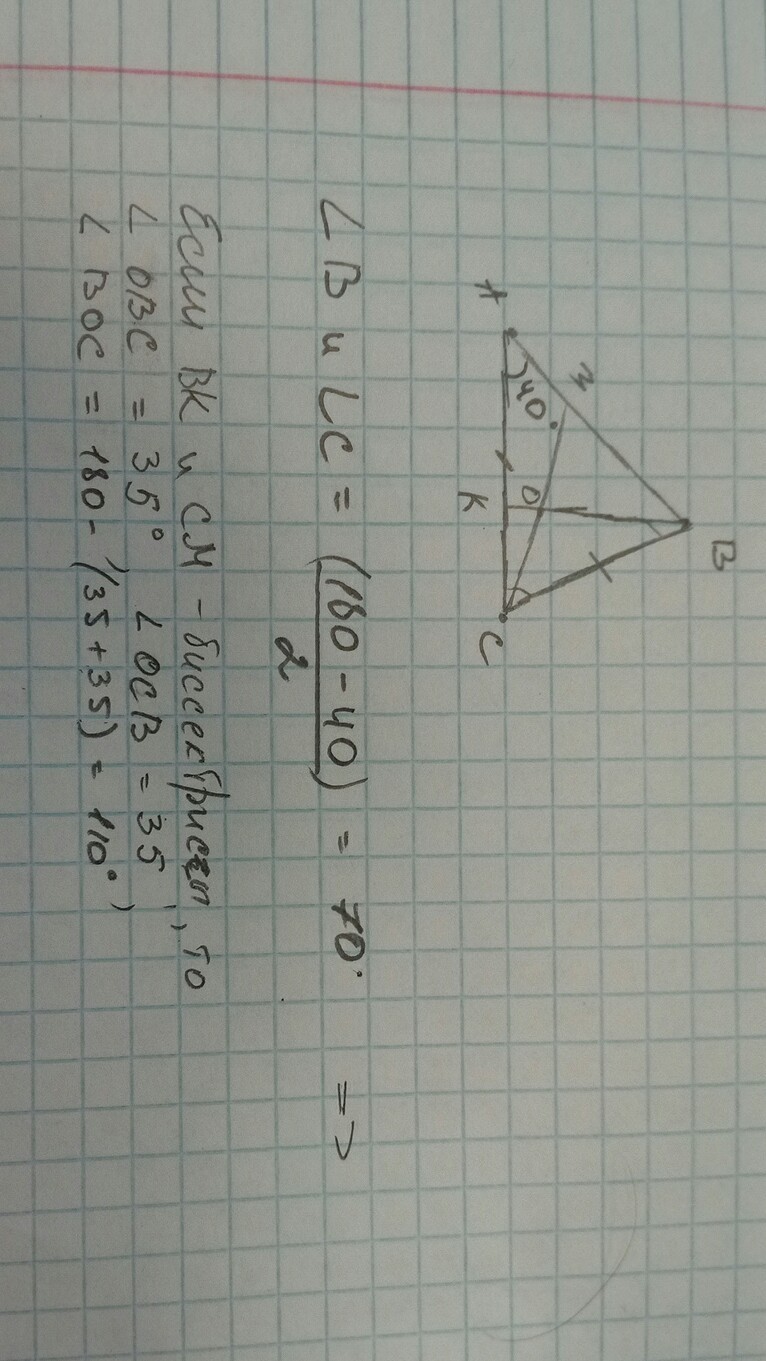 B
м
A
40°
O
K
C
∠B и ∠C = (180 - 40) = 70° =>
2
Если BK и CM - биссектрисы, то
∠OBC = 35° ∠OCB = 35,
∠BOC = 180 - (35 + 35) = 110°